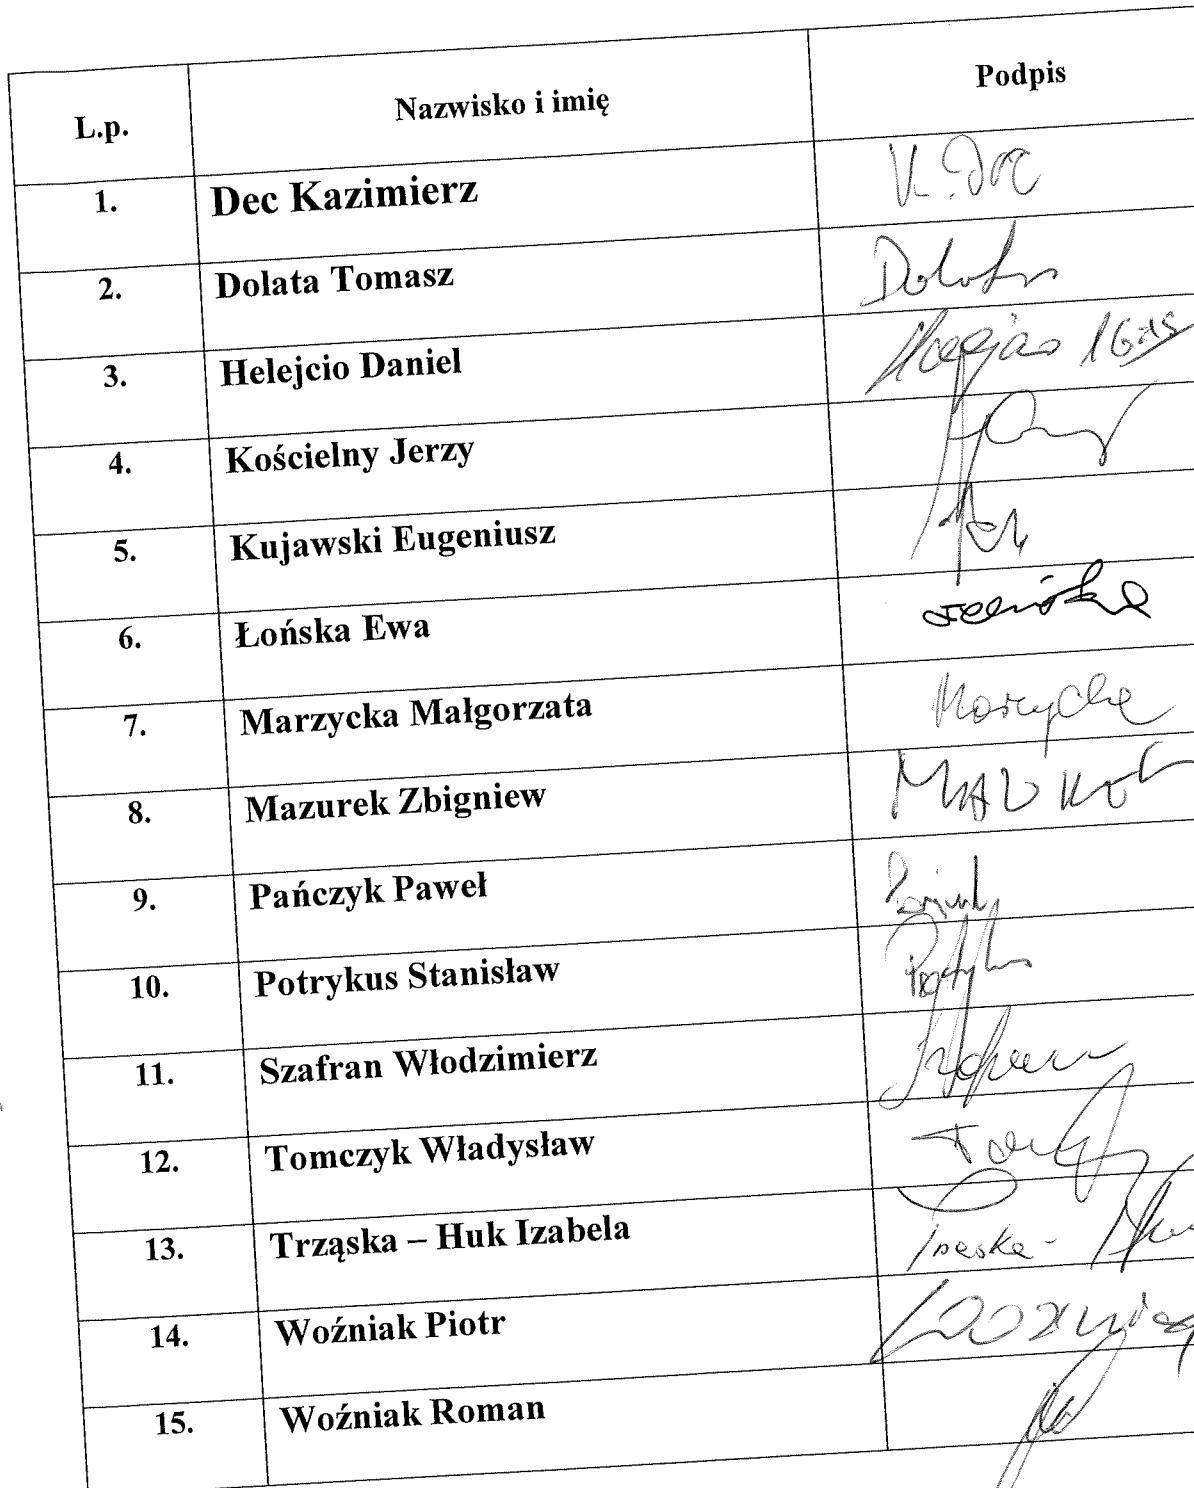 L.p. Nazwisko i imię Podpis
1. Dec Kazimierz K. Dec
2. Dolata Tomasz Dolata
3. Helejcio Daniel
4. Kościelny Jerzy
5. Kujawski Eugeniusz
6. Łońska Ewa
7. Marzycka Małgorzata Marzycka
8. Mazurek Zbigniew
9. Pańczyk Paweł
10. Potrykus Stanisław
11. Szafran Włodzimierz
12. Tomczyk Władysław
13. Trząska – Huk Izabela
14. Woźniak Piotr Woźniak
15. Woźniak Roman